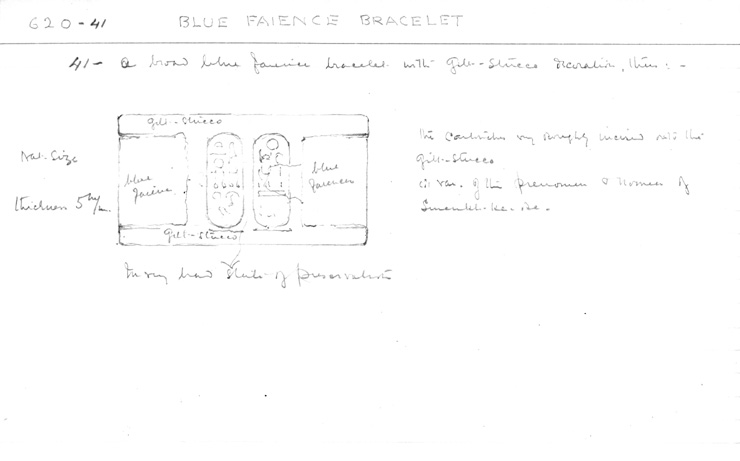 620-41 BLUE FAIENCE BRACELET
41- a broad blue faience bracelet with gilt-stucco decoration, thus:-
gilt-stucco
Nat. Size
blue faience
blue faience
thickness 5 m/m
gilt-stucco
The cartouches very roughly incised into the
gilt-stucco
var. of the prenomen & nomen of
Smenkh-ka-re.
In very bad state of preservation